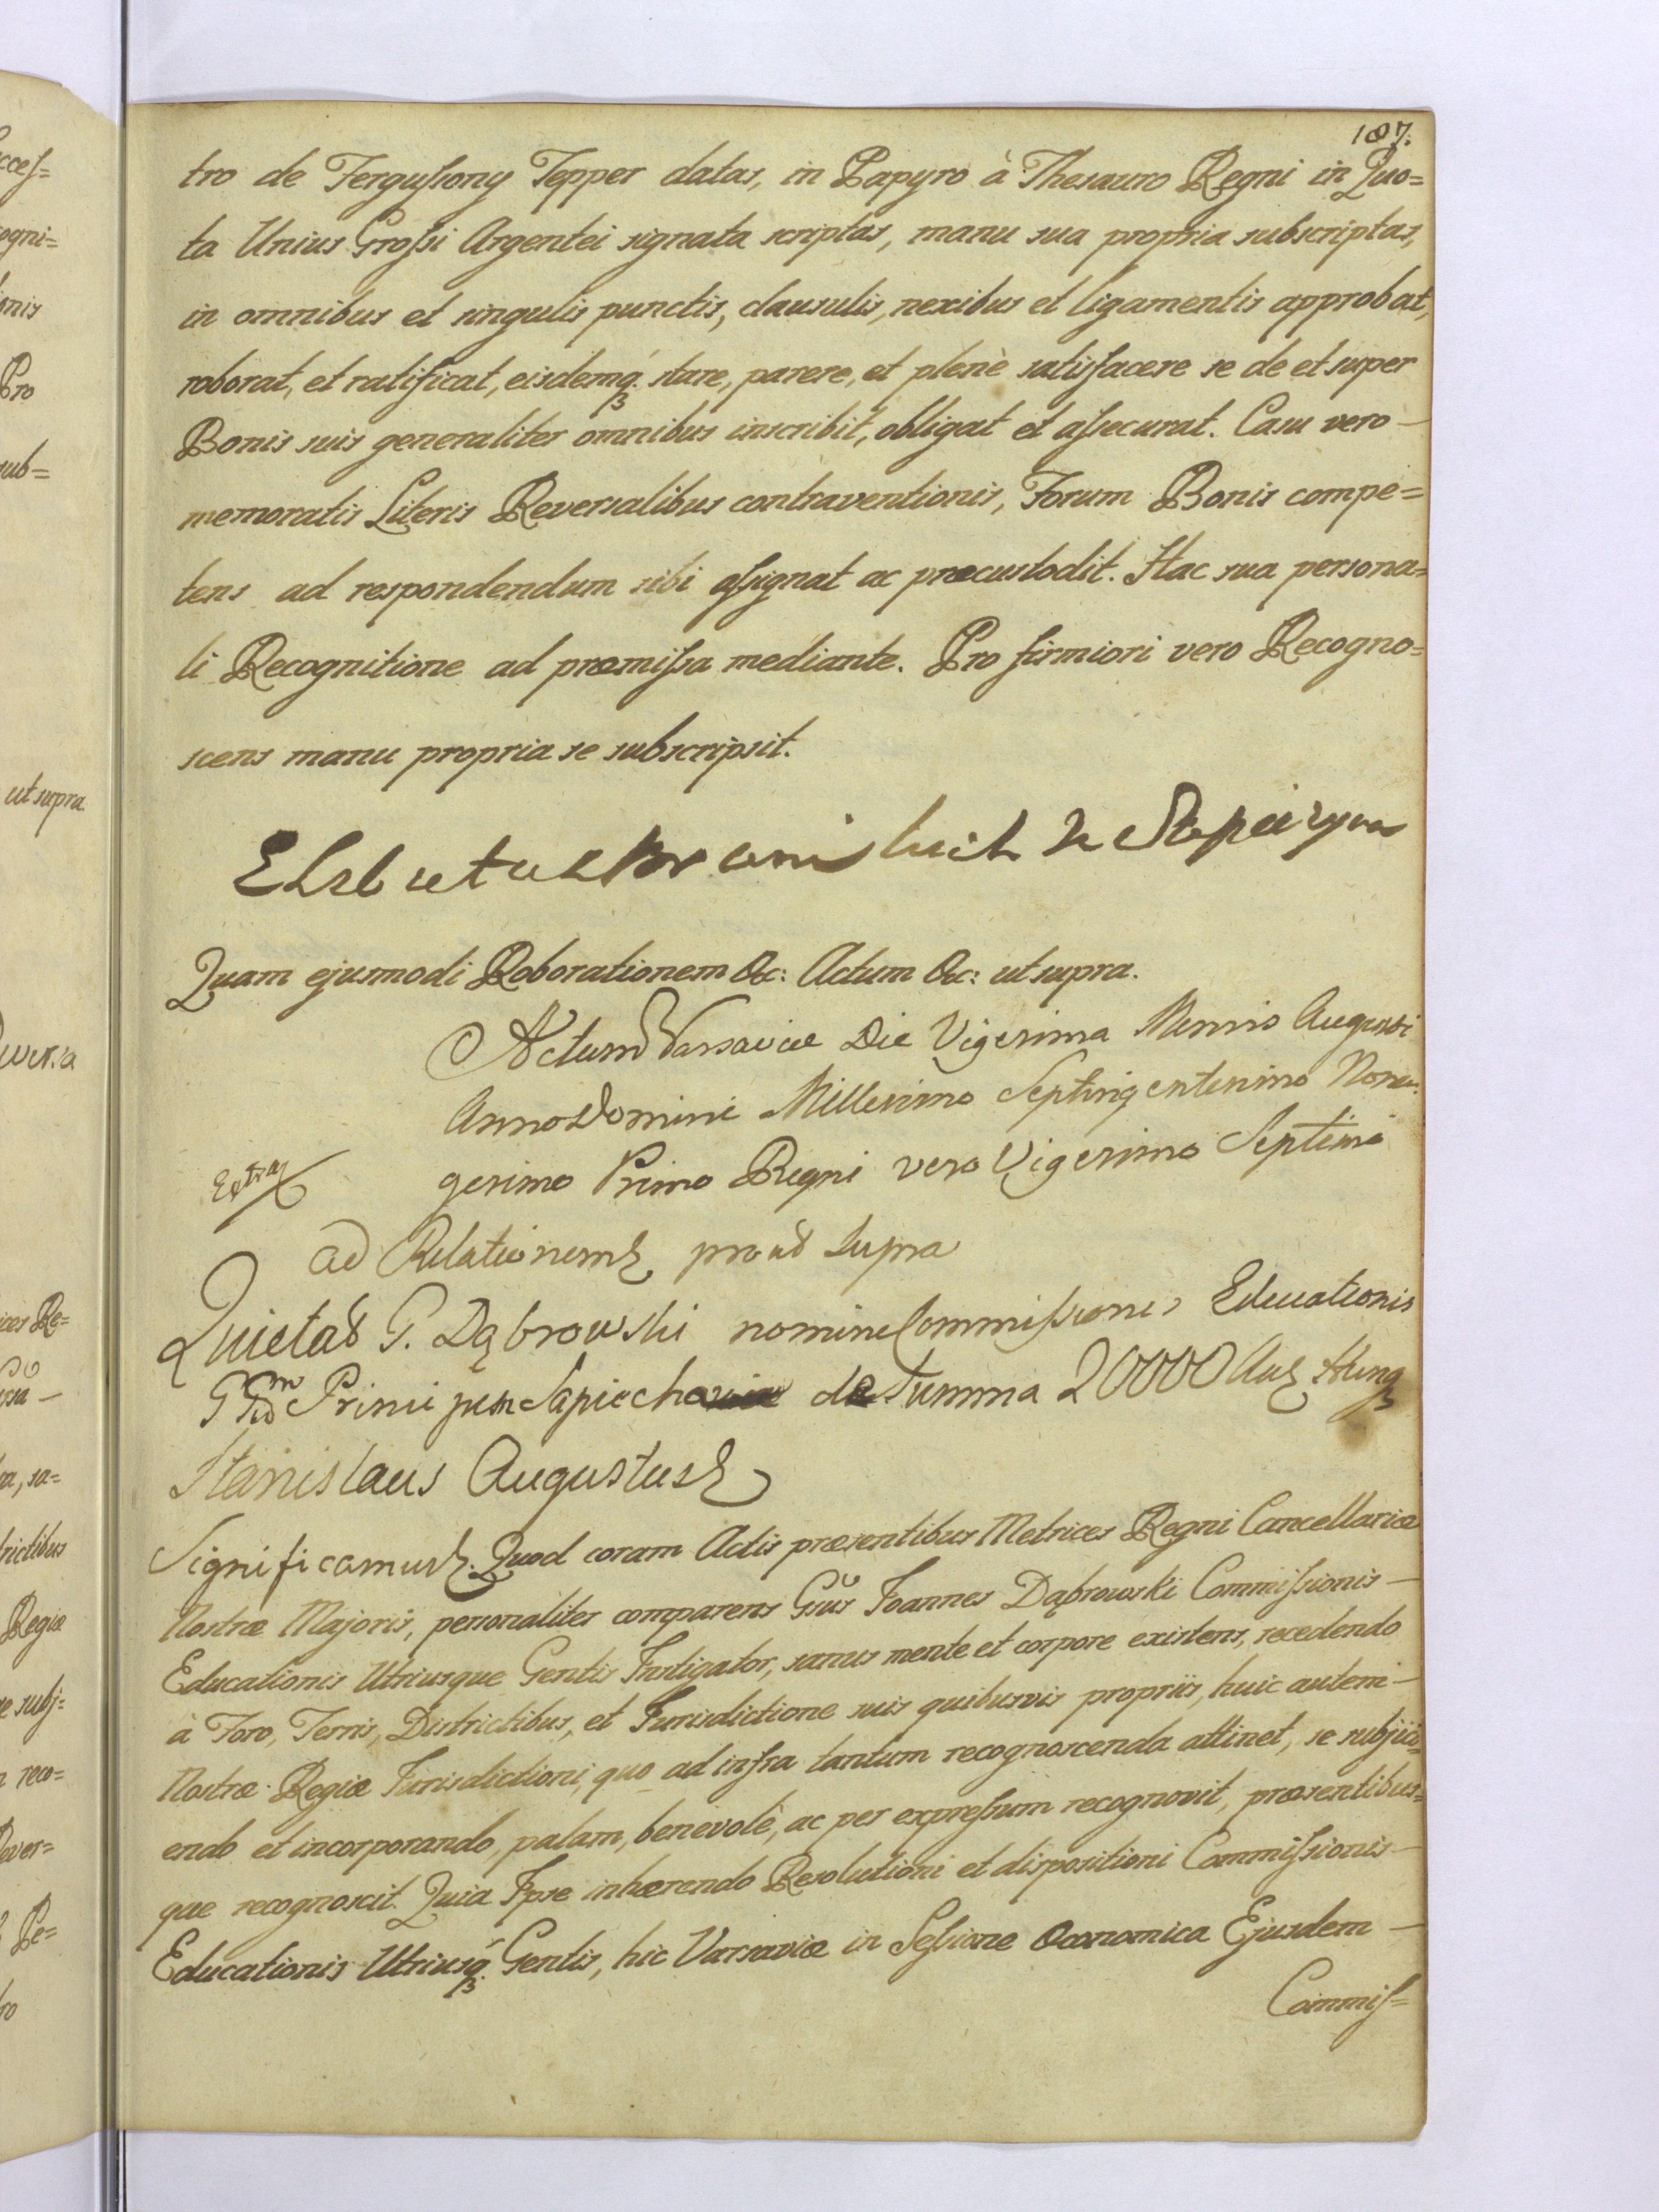 187.
tro de Ferguſsony Tepper datas, in Papyro à Thesauro Regni in Quo=
ta Unius Groſsi Argentei signata scriptas, manu sua propria subscriptas,
in omnibus et singulis punctis, clausulis, nexibus et ligamentis approbat,
roborat, et ratificat, eisdemq́ꝫ. stare, parere, et plenè satisfacere se de et super
Bonis suis generaliter omnibus inscribit, obligat et aſsecurat. Casu vero —
memoratis Literis Reversalibus contraventionis, Forum Bonis compe=
tens ad respondendum sibi aſsignat ac præcustodit. Hac sua persona=
li Recognitione ad præmiſsa mediante. Pro firmiori vero Recogno=
scens manu propria se subscripsit.
Quam ejusmodi Roborationem &c: Actum &c: ut supra.
Actum Varsaviæ Die Vigesima Mensis Augusti
Anno Domini Millesimo Septingentesimo Nona-
gesimo Primo Regni vero Vigesimo Septimo
Extra
ad Relationem prout supra
Quietat G. Dąbrowski nomine Commiſsionis Educationis
Principem Sapiecha de Summa 20000 Aur Hung
Stanislaus Augustus
Significamus. Quod coram Actis præsentibus Metrices Regni Cancellariæ
Nostræ Majoris, personaliter comparens Gsus Joannes Dąbrowski Commiſsionis —
Educationis Utriusque Gentis Instigator, sanus mente et corpore existens, recedendo
à Foro, Terris, Districtibus, et Jurisdictione suis quibusvis propriis, huic autem —
Nostræ Regiæ Jurisdictioni, quo ad infra tantum recognoscenda attinet, se subjici-
endo et incorporando, palam, benevolè, ac per expreſsum recognovit, præsentibus=
que recognoscit. Quia Ipse inhærendo Resolutioni et dispositioni Commiſsionis —
Educationis Utriusq́ꝫ. Gentis, hic Varsaviæ in Seſsione Œconomica Ejusdem —
Commiſ=
cceſ=
ogni=
onis
Pro
sub=
ut supra
ices Re=
ra, sa=
rictibus
Regiæ
re subj=
n reco=
Rever=
Pe=
ro